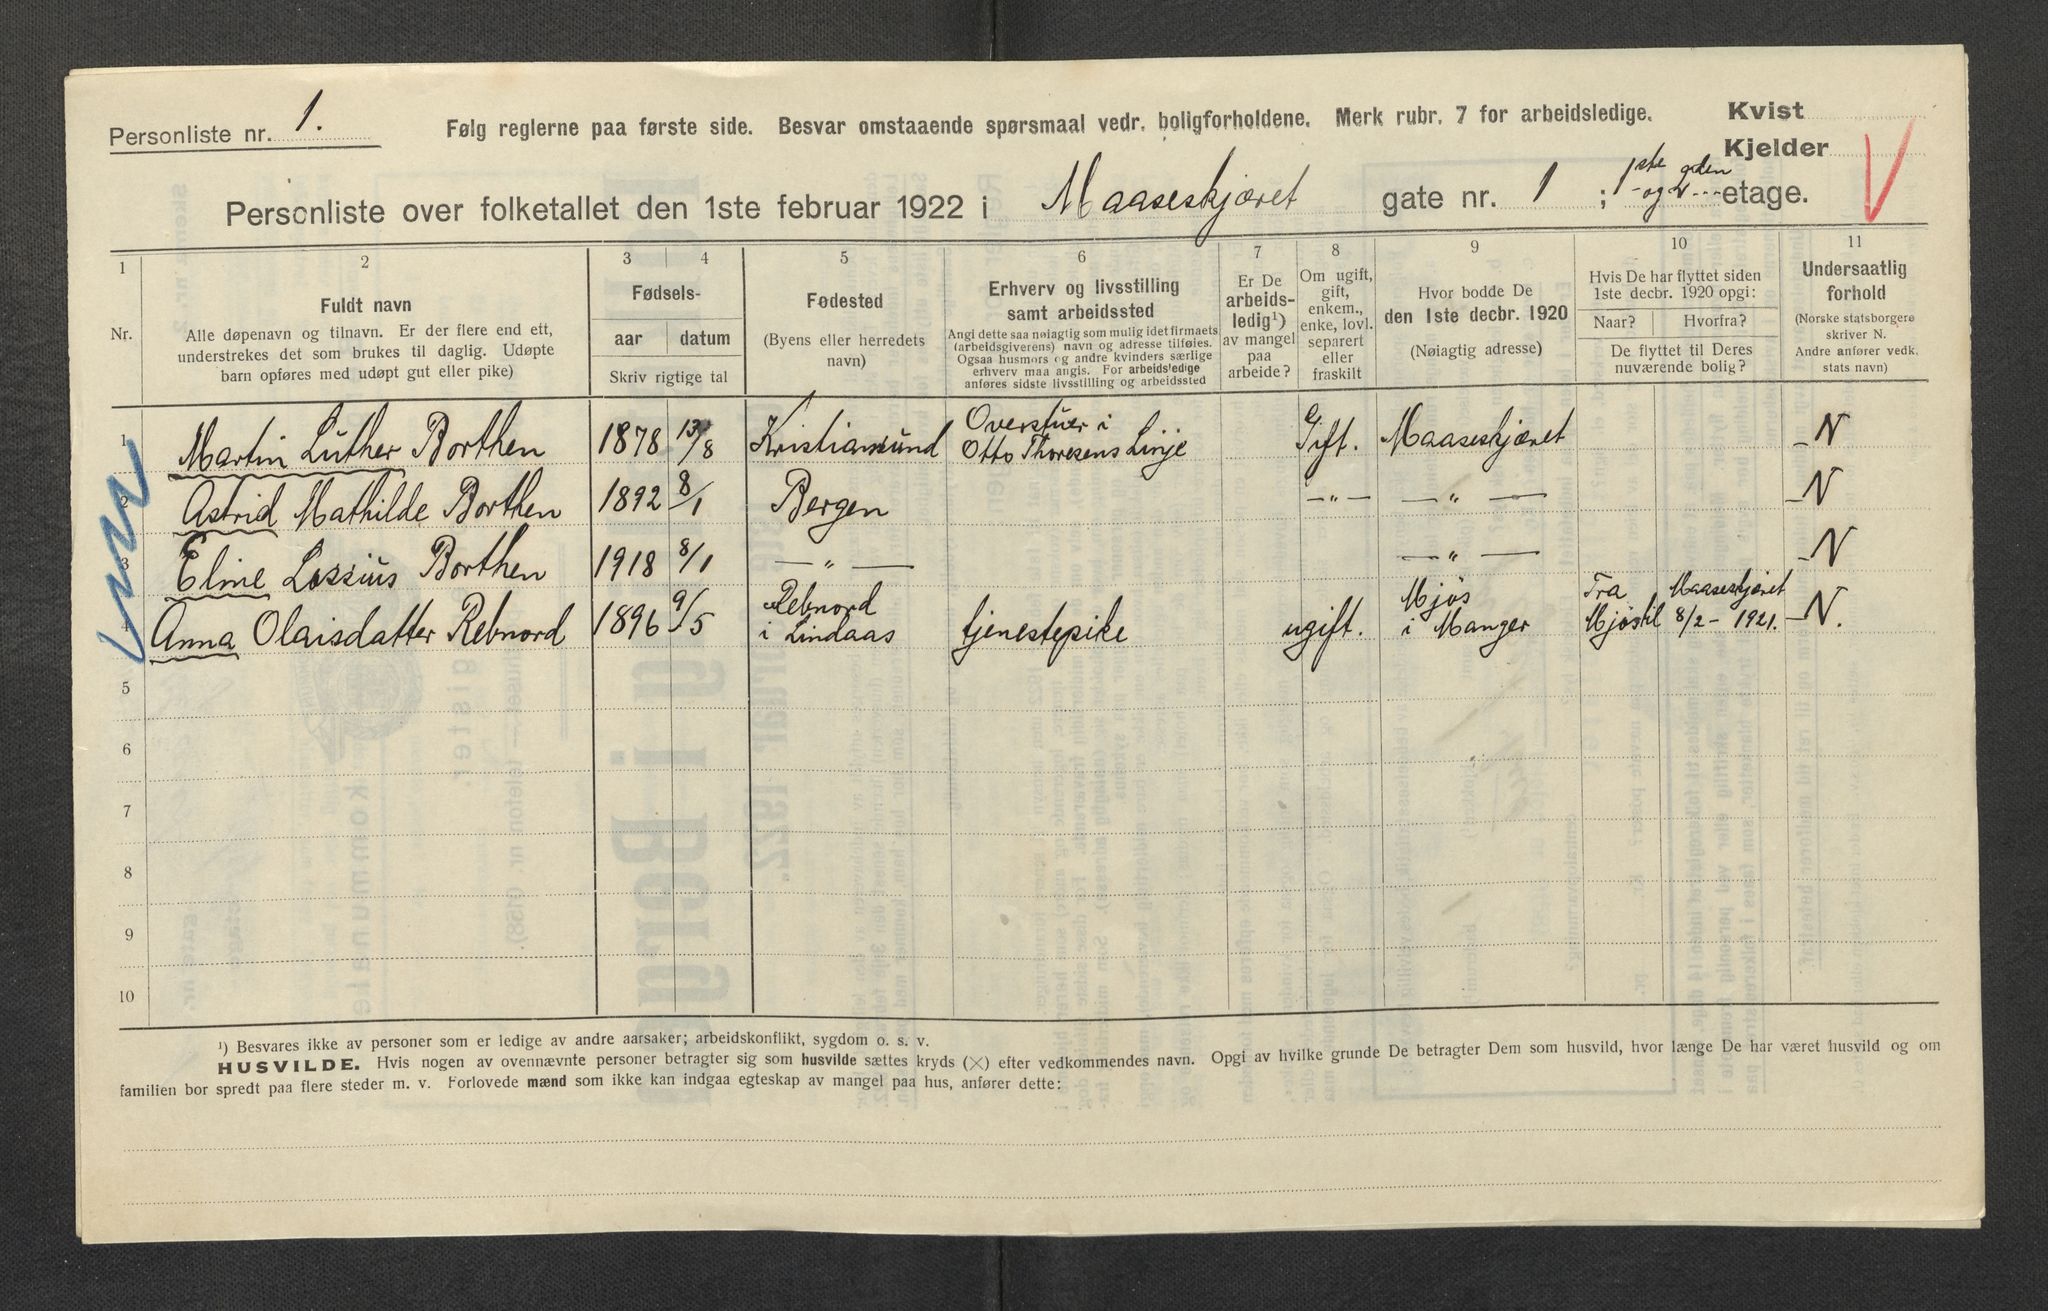 Personliste nr. 1.
Følg reglerne paa første side. Besvar omstaaende spørsmaal vedr. boligforholdene. Merk rubr. 7 for arbeidsledige.
Kvist
Kjelder
Personliste over folketallet den 1ste februar 1922 i Maaseskjæret gate nr. 1 ; 1ste og 2den etage.
1 2 3 4 5 6 7 8 9 10 11
Nr.
Fuldt navn
Alle døpenavn og tilnavn. Er der flere end ett,
understrekes det som brukes til daglig. Udøpte
barn opføres med udøpt gut eller pike)
Fødsels-
aar datum
Skriv rigtige tal
Fødested
(Byens eller herredets
navn)
Erhverv og livsstilling
samt arbeidssted
Angi dette saa nøiagtig som mulig idet firmaets
(arbeidsgiverens) navn og adresse tilføies.
Ogsaa husmors og andre kvinders særlige
erhverv maa angis. For arbeidsledige
anføres sidste livsstilling og arbeidssted
Er De
arbeids-
ledig¹)
av mangel
paa
arbeide?
Om ugift,
gift,
enkem.,
enke, lovl.
separert
eller
fraskilt
Hvor bodde De
den 1ste decbr. 1920
(Nøiagtig adresse)
Hvis De har flyttet siden
1ste decbr. 1920 opgi:
Naar? Hvorfra?
De flyttet til Deres
nuværende bolig?
Undersaatlig
forhold
(Norske statsborgere
skriver N.
Andre anfører vedk.
stats navn)
1 Martin Luther Borthen 1878 13/8 Kristiansund Overstuer i Otto Thoresens Linje Gift. Maaseskjæret N
2 Astrid Mathilde Borthen 1892 8/1 Bergen —"— —"— N
3 Eline Lossius Borthen 1918 8/1 —"— —"— N
4 Anna Olaisdatter Rebnord 1896 9/5 Rebnord i Lindaas tjenestepike ugift. Mjøs i Manger Fra Mjøs til Maaseskjæret 8/2 - 1921. N.
5
6
7
8
9
10
¹) Besvares ikke av personer som er ledige av andre aarsaker; arbeidskonflikt, sygdom o. s. v.
HUSVILDE. Hvis nogen av ovennævnte personer betragter sig som husvilde sættes kryds (×) efter vedkommendes navn. Opgi av hvilke grunde De betragter Dem som husvild, hvor længe De har været husvild og om
familien bor spredt paa flere steder m. v. Forlovede mænd som ikke kan indgaa egteskap av mangel paa hus, anfører dette: